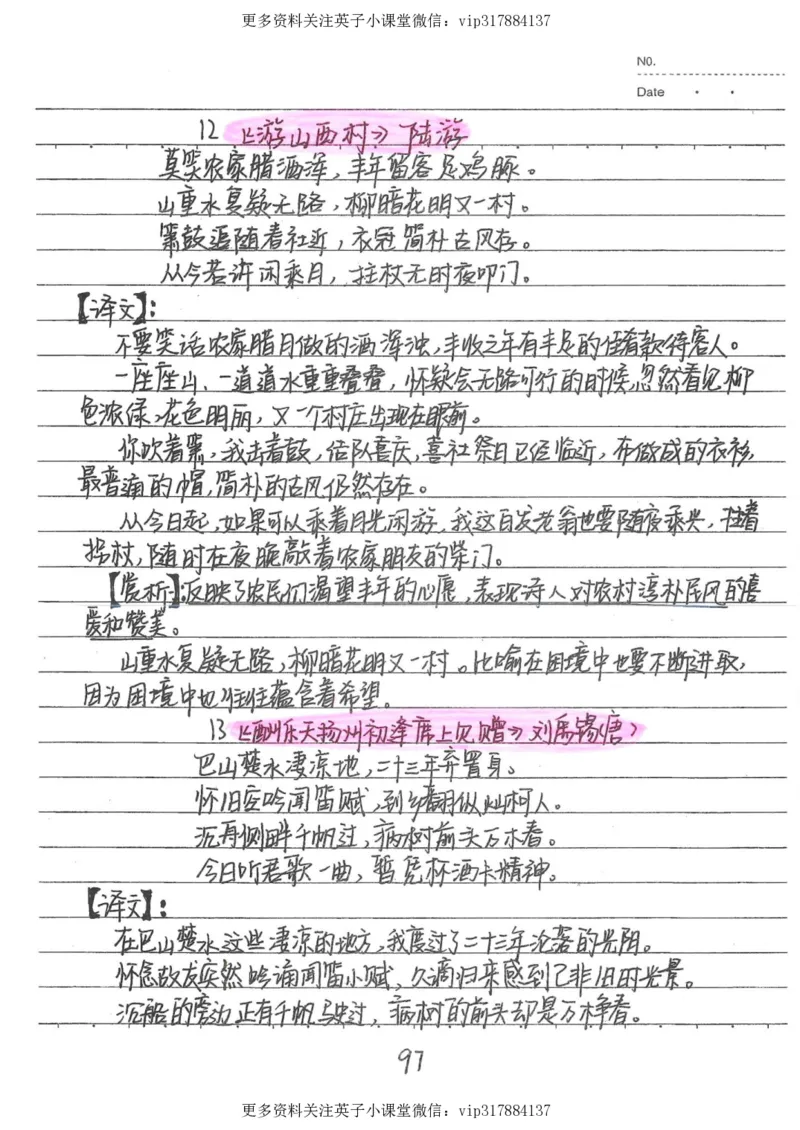 更多资料关注英子小课堂微信：vip317884137
NO.
Date
12 《游山西村》 陆游
莫笑农家腊酒浑，丰年留客足鸡豚。
山重水复疑无路，柳暗花明又一村。
箫鼓追随春社近，衣冠简朴古风存。
从今若许闲乘月，拄杖无时夜叩门。
【译文】：
不要笑话农家腊月做的酒浑浊，丰收之年有丰足的佳肴款待客人。
一座座山、一道道水重重叠叠，怀疑会无路可行的时候，忽然看见柳
色浓绿，花色明丽，又一个村庄出现在眼前。
你吹着箫，我击着鼓，结队喜庆，喜社祭日已经临近，布做成的衣衫，
最普通的帽，简朴的古风仍然存在。
从今日起，如果可以乘着月光闲游，我这白发老翁也要随夜乘兴，拄着
拐杖，随时在夜晚敲着农家朋友的柴门。
【赏析】：反映了农民们渴望丰年的心愿，表现诗人对农村淳朴民风的喜
爱和赞美。
山重水复疑无路，柳暗花明又一村。比喻在困境中也要不断进取，
因为困境中也往往蕴含着希望。
13 《酬乐天扬州初逢席上见赠》 刘禹锡（唐）
巴山楚水凄凉地，二十三年弃置身。
怀旧空吟闻笛赋，到乡翻似烂柯人。
沉舟侧畔千帆过，病树前头万木春。
今日听君歌一曲，暂凭杯酒长精神。
【译文】：
在巴山楚水这些凄凉的地方，我度过了二十三年沦落的光阴。
怀念故友突然吟诵闻笛小赋，久谪归来感到已非旧时光景。
沉船的旁边正有千帆驶过，病树的前头却是万木争春。
97
更多资料关注英子小课堂微信：vip317884137